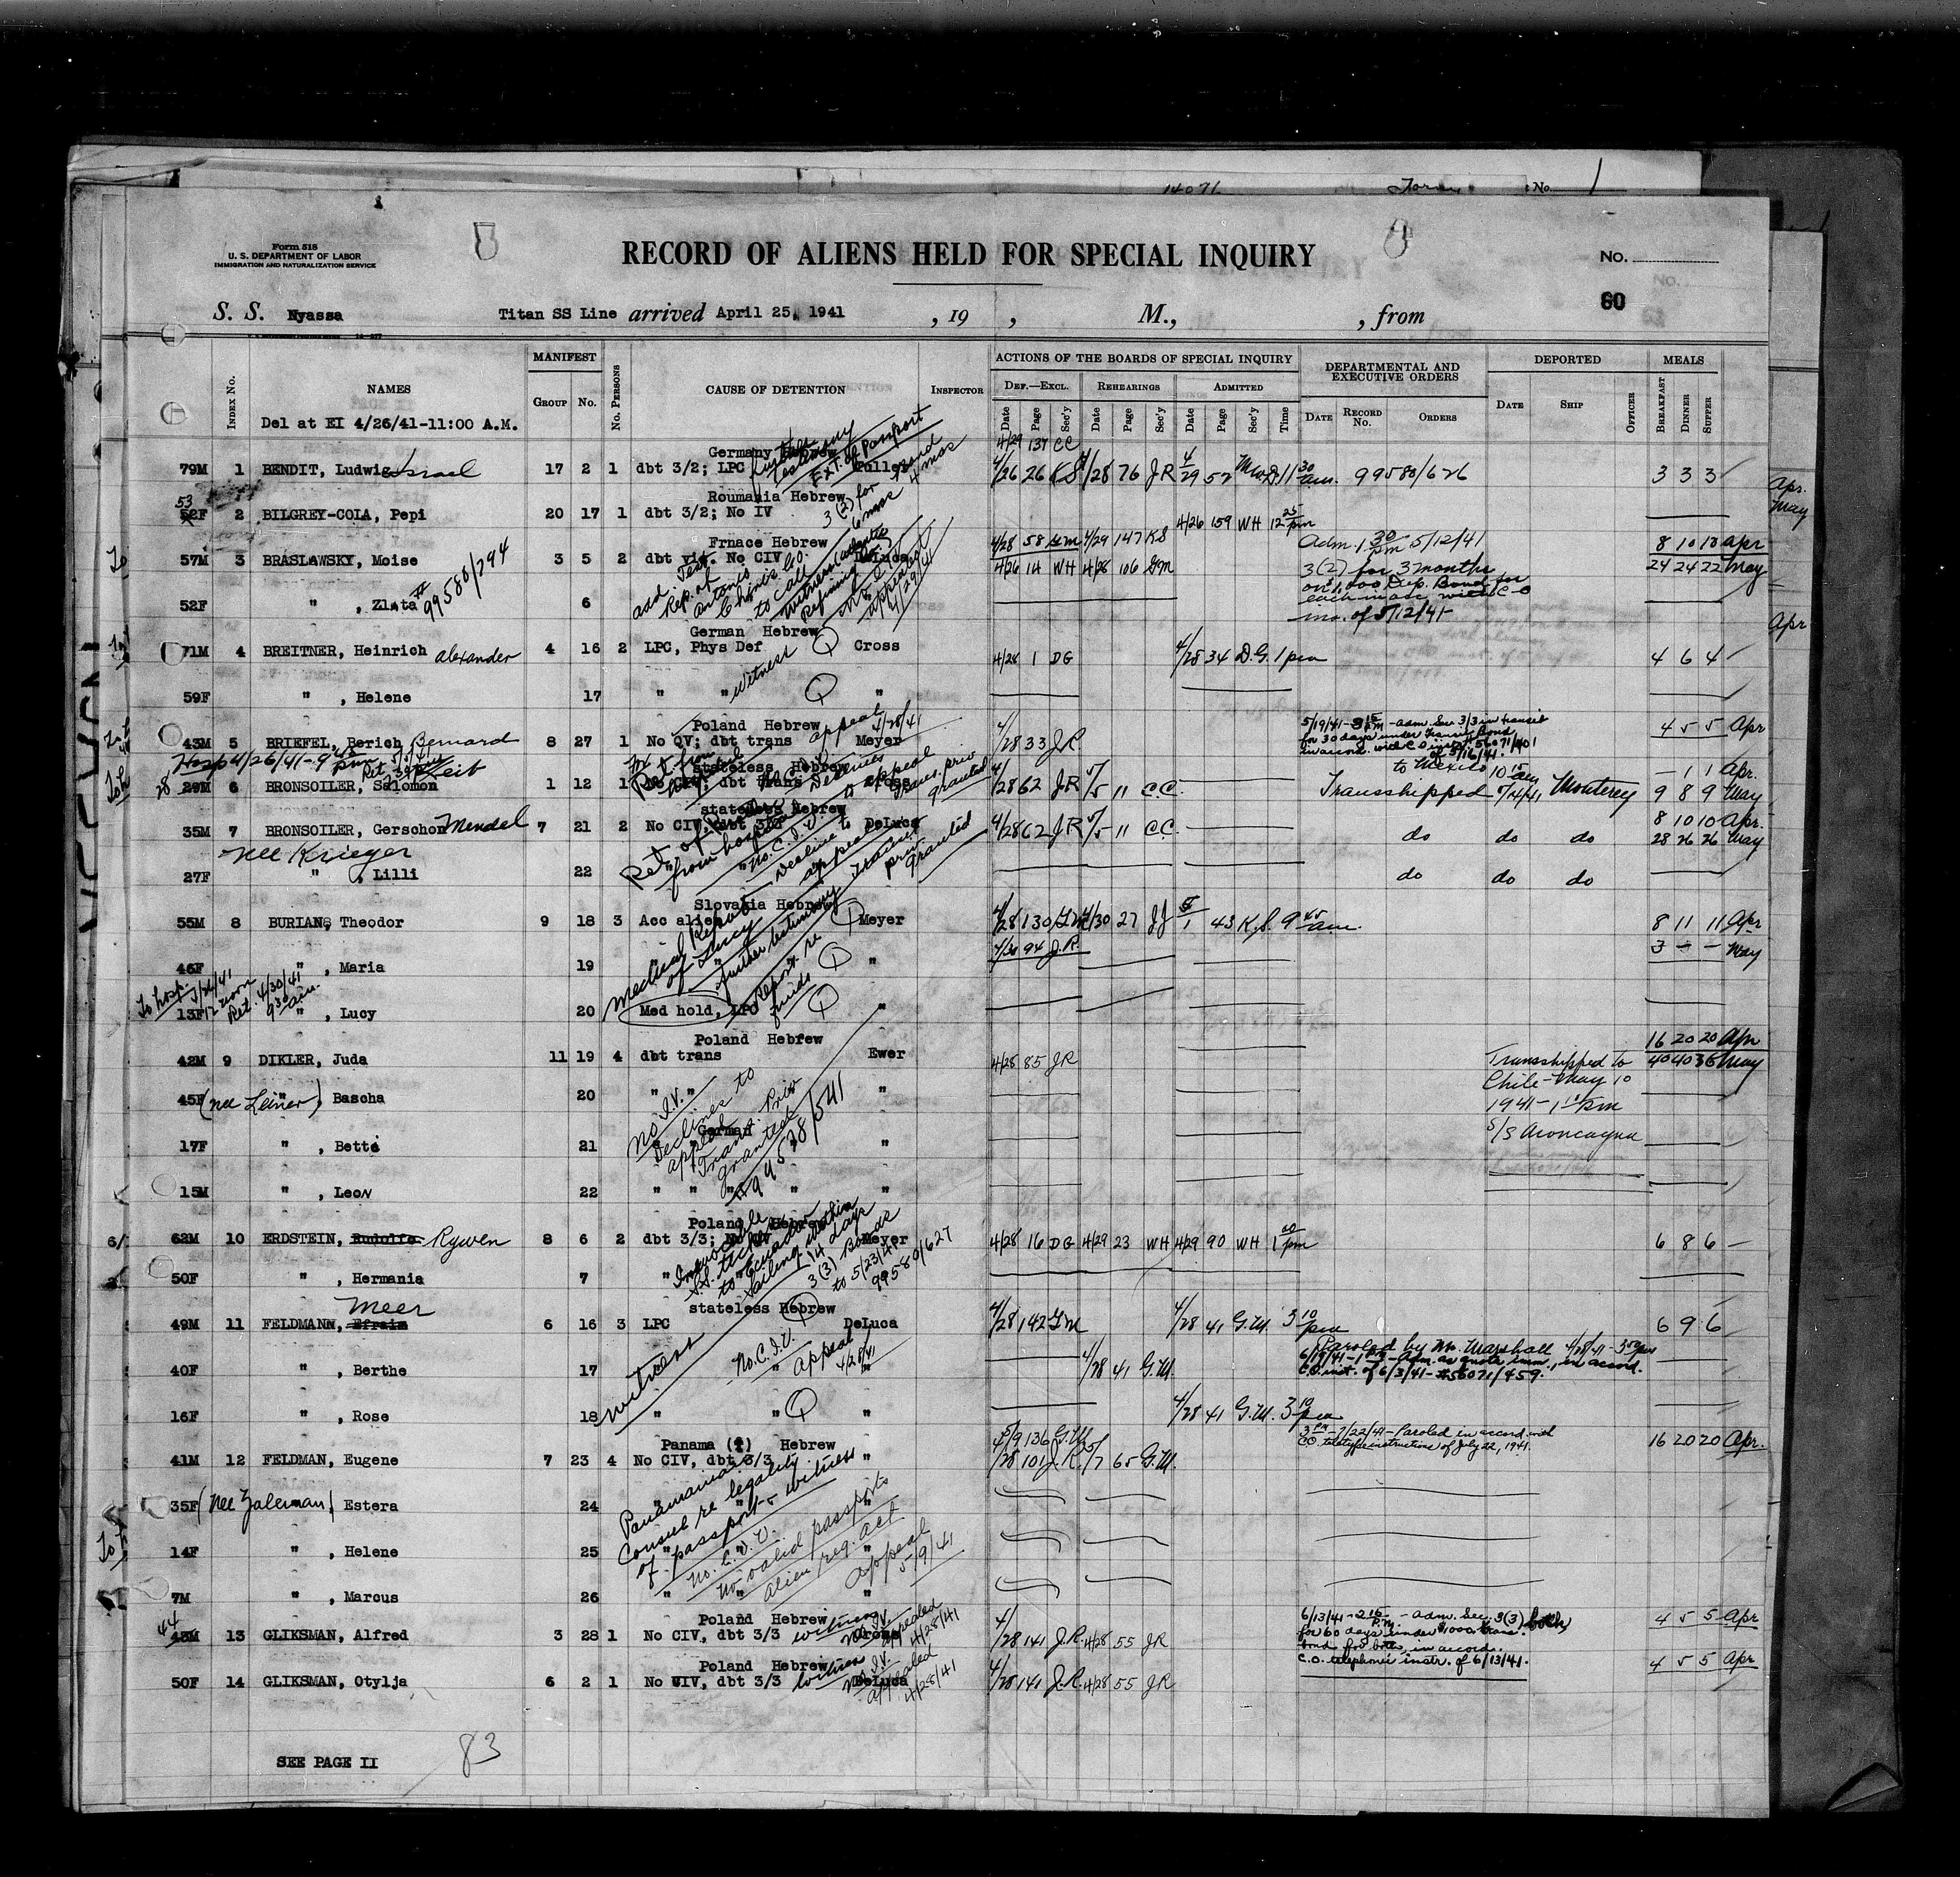 14071
No. 1
Form 518
U. S. DEPARTMENT OF LABOR
IMMIGRATION AND NATURALIZATION SERVICE
RECORD OF ALIENS HELD FOR SPECIAL INQUIRY
No.
60
S. S. Nyassa Titan SS Line arrived April 25, 1941 , 19 , M., , from
Index No. NAMES MANIFEST Group No. No. Persons CAUSE OF DETENTION Inspector ACTIONS OF THE BOARDS OF SPECIAL INQUIRY Def.—Excl. Date Page Sec'y Rehearings Date Page Sec'y Admitted Date Page Sec'y Time DEPARTMENTAL AND EXECUTIVE ORDERS Date Record No. Orders DEPORTED Date Ship Officer MEALS Breakfast Dinner Supper
Del at EI 4/26/41-11:00 A.M.
4/29 137 CC
Germany Hebrew further testimony Ext. of Passport
79M 1 BENDIT, Ludwig Israel 17 2 1 dbt 3/2; LPC Fuller 4/26 26 KS 4/28 76 JR 4/29 52 11 30 am. 99580/626 3 3 3
Roumania Hebrew 3(2) for 6 mos
53 52F 2 BILGREY-COIA, Pepi 20 17 1 dbt 3/2; No IV 4/26 159 WH 12 25 pm
Frnace Hebrew
57M 3 BRASLAWSKY, Moise 3 5 2 dbt vis. No CIV DeLuca 4/28 58 GM 4/29 147 KS Adm. 1 30 pm 5/12/41 8 10 10 Apr
4/26 14 WH 4/28 106 GM 3(2) for 3 months 24 24 22 May
on 1,000 Dep. Bond for
52F " , Zlata #99580/294 6 each in acc with C-O
ins. of 5/12/41
German Hebrew
71M 4 BREITNER, Heinrich Alexander 4 16 2 LPC, Phys Def Cross 4/28 1 DG 4/28 34 D.G. 1 pm 4 6 4
59F " , Helene 17 " " witness "
Poland Hebrew appeal 4/28/41
43M 5 BRIEFEL, Berich Bernard 8 27 1 No QV; dbt trans Meyer 4/28 33 J.R. 5/19/41- 3 15 PM - adm. Sec 3/3 in transit 4 5 5 Apr
for 30 days under Transit Bond
in accord. with C O inst. 56071/401
of 5/16/41.
Hosp 4/26/41-9 pm Leib stateless Hebrew to Mexico 10 15 am — 1 1 Apr.
28 29M 6 BRONSOILER, Salomon 1 12 1 No CIV; dbt trans Cross 4/28 62 JR 5/5 11 C.C. Transshipped 5/14/41 Monterey 9 8 9 May
stateless Hebrew 8 10 10 Apr.
35M 7 BRONSOILER, Gerschon Mendel 7 21 2 No CIV, dbt 3/3 DeLuca 4/28 62 JR 5/5 11 C.C. do do do 28 26 26 May
nee Krieger
27F " , Lilli 22 from hospital No. C.I.V. Decline to appeal Transit priv. granted do do do
Slovakia Hebrew
55M 8 BURIANS, Theodor 9 18 3 Acc alien Meyer 4/28 130 GM 4/30 27 JJ 5/1 43 K.S. 9 45 am. 8 11 11 Apr
4/30 94 J.R. 3 — — May
46F " , Maria 19 Medical Report of Lucy further testimony "
To hosp. 12 noon Ret. 4/30/41 9 30 am.
13F " , Lucy 20 Med hold, LPC Report re funds "
Poland Hebrew 16 20 20 Apr
42M 9 DIKLER, Juda 11 19 4 dbt trans Ewer 4/28 85 JR Transshipped to 40 40 36 May
Chile - May 10
45F (nee Leiner) " Bascha 20 " " No I.V. Declines to appeal " 1941 - 1 pm
17F " , Bette 21 German Trans. Priv granted " S/S Aconcagua
15M " , Leon 22 " " " 99538/541 "
Poland Hebrew
62M 10 ERDSTEIN, Rudolfo Rywen 8 6 2 dbt 3/3; Meyer 4/28 16 DG 4/29 23 WH 4/29 90 WH 1 00 pm 6 8 6 —
50F " , Hermania 7 " S.S. tickets to Ecuador sailing within 14 days 3(3) Bonds to 5/23/41 99580/627
Meer stateless Hebrew
49M 11 FELDMANN, Efraim 6 16 3 LPC DeLuca 4/28 142 GM 4/28 41 G.M. 3 10 pm 6 9 6
Paroled by Mr. Marshall 4/28/41 - 3 50 pm
40F " , Berthe 17 No. C.I.V. " appeal 4/28/41 " 4/28 41 G.M. 6/19/41 - adm. as quota imm., in accord.
C.O. inst. of 6/3/41 - #56071/459.
16F " , Rose 18 witness " " " 4/28 41 G.M. 3 10 pm
Panama (?) Hebrew 5/9 136 G.M. 3 PM - 7/22/41 - Paroled in accord with
C.O. teletype instructions of July 22, 1941.
41M 12 FELDMAN, Eugene 7 23 4 No CIV, dbt 3/3 " 4/28 101 J.R. 5/7 65 G.M. 16 20 20 Apr.
35F (nee Zalcman) Estera 24 Panamanian Consul re legality of passport & witness "
14F " , Helene 25 No. C.I.V. No valid passports "
7M " , Marcus 26 " alien reg. act appeal 5/9/41 "
Poland Hebrew No I.V. appealed 4/28/41 6/13/41 - 2 15 P.M. - adm. Sec. 3(3) both
44 43M 13 GLIKSMAN, Alfred 3 28 1 No CIV, dbt 3/3 witness Cross 4/28 141 J.R. 4/28 55 JR for 60 days under $1000 trans. 4 5 5 Apr
bond for both, in accord.
Poland Hebrew No I.V. appealed 4/28/41 C.O. telephonic instr. of 6/13/41.
50F 14 GLIKSMAN, Otylja 6 2 1 No CIV, dbt 3/3 witness DeLuca 4/28 141 J.R. 4/28 55 JR 4 5 5 Apr
SEE PAGE II 83
Apr.
May
Apr